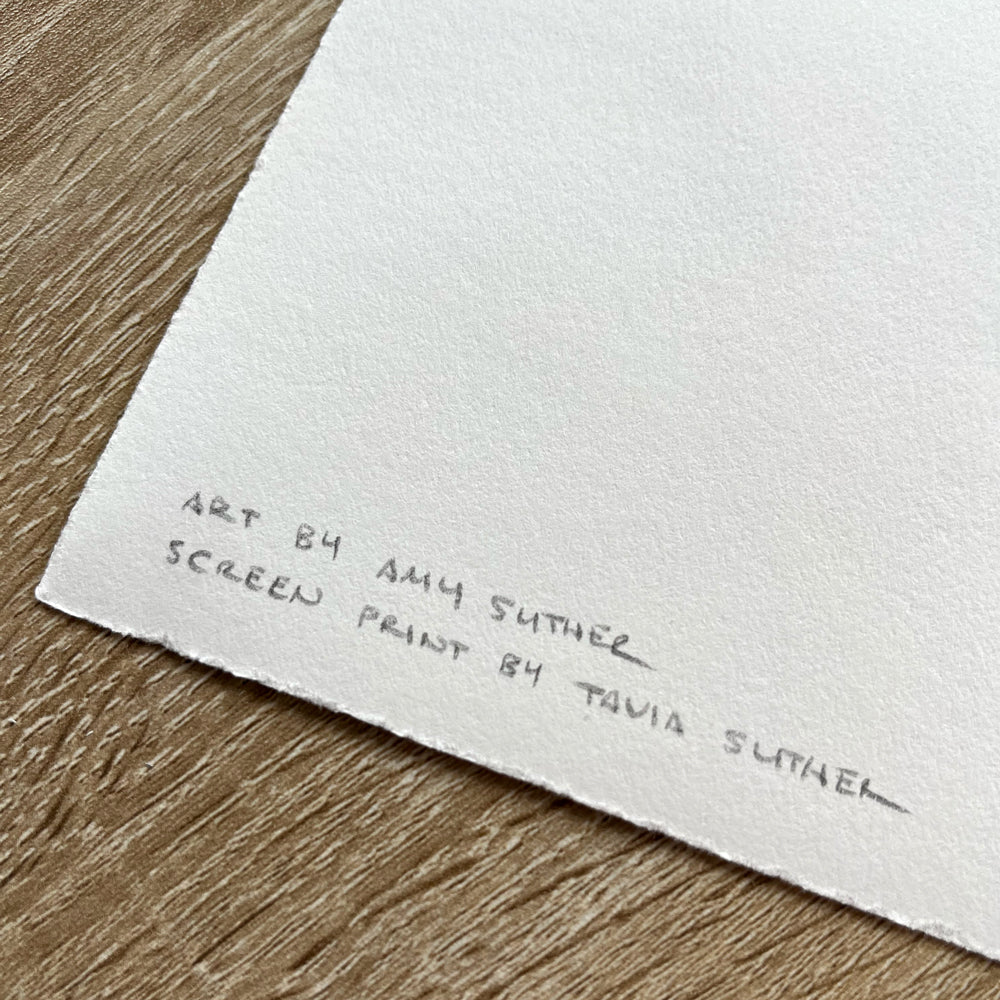 ART BY AMY SUTHER
SCREEN PRINT BY TAVIA SUTHER